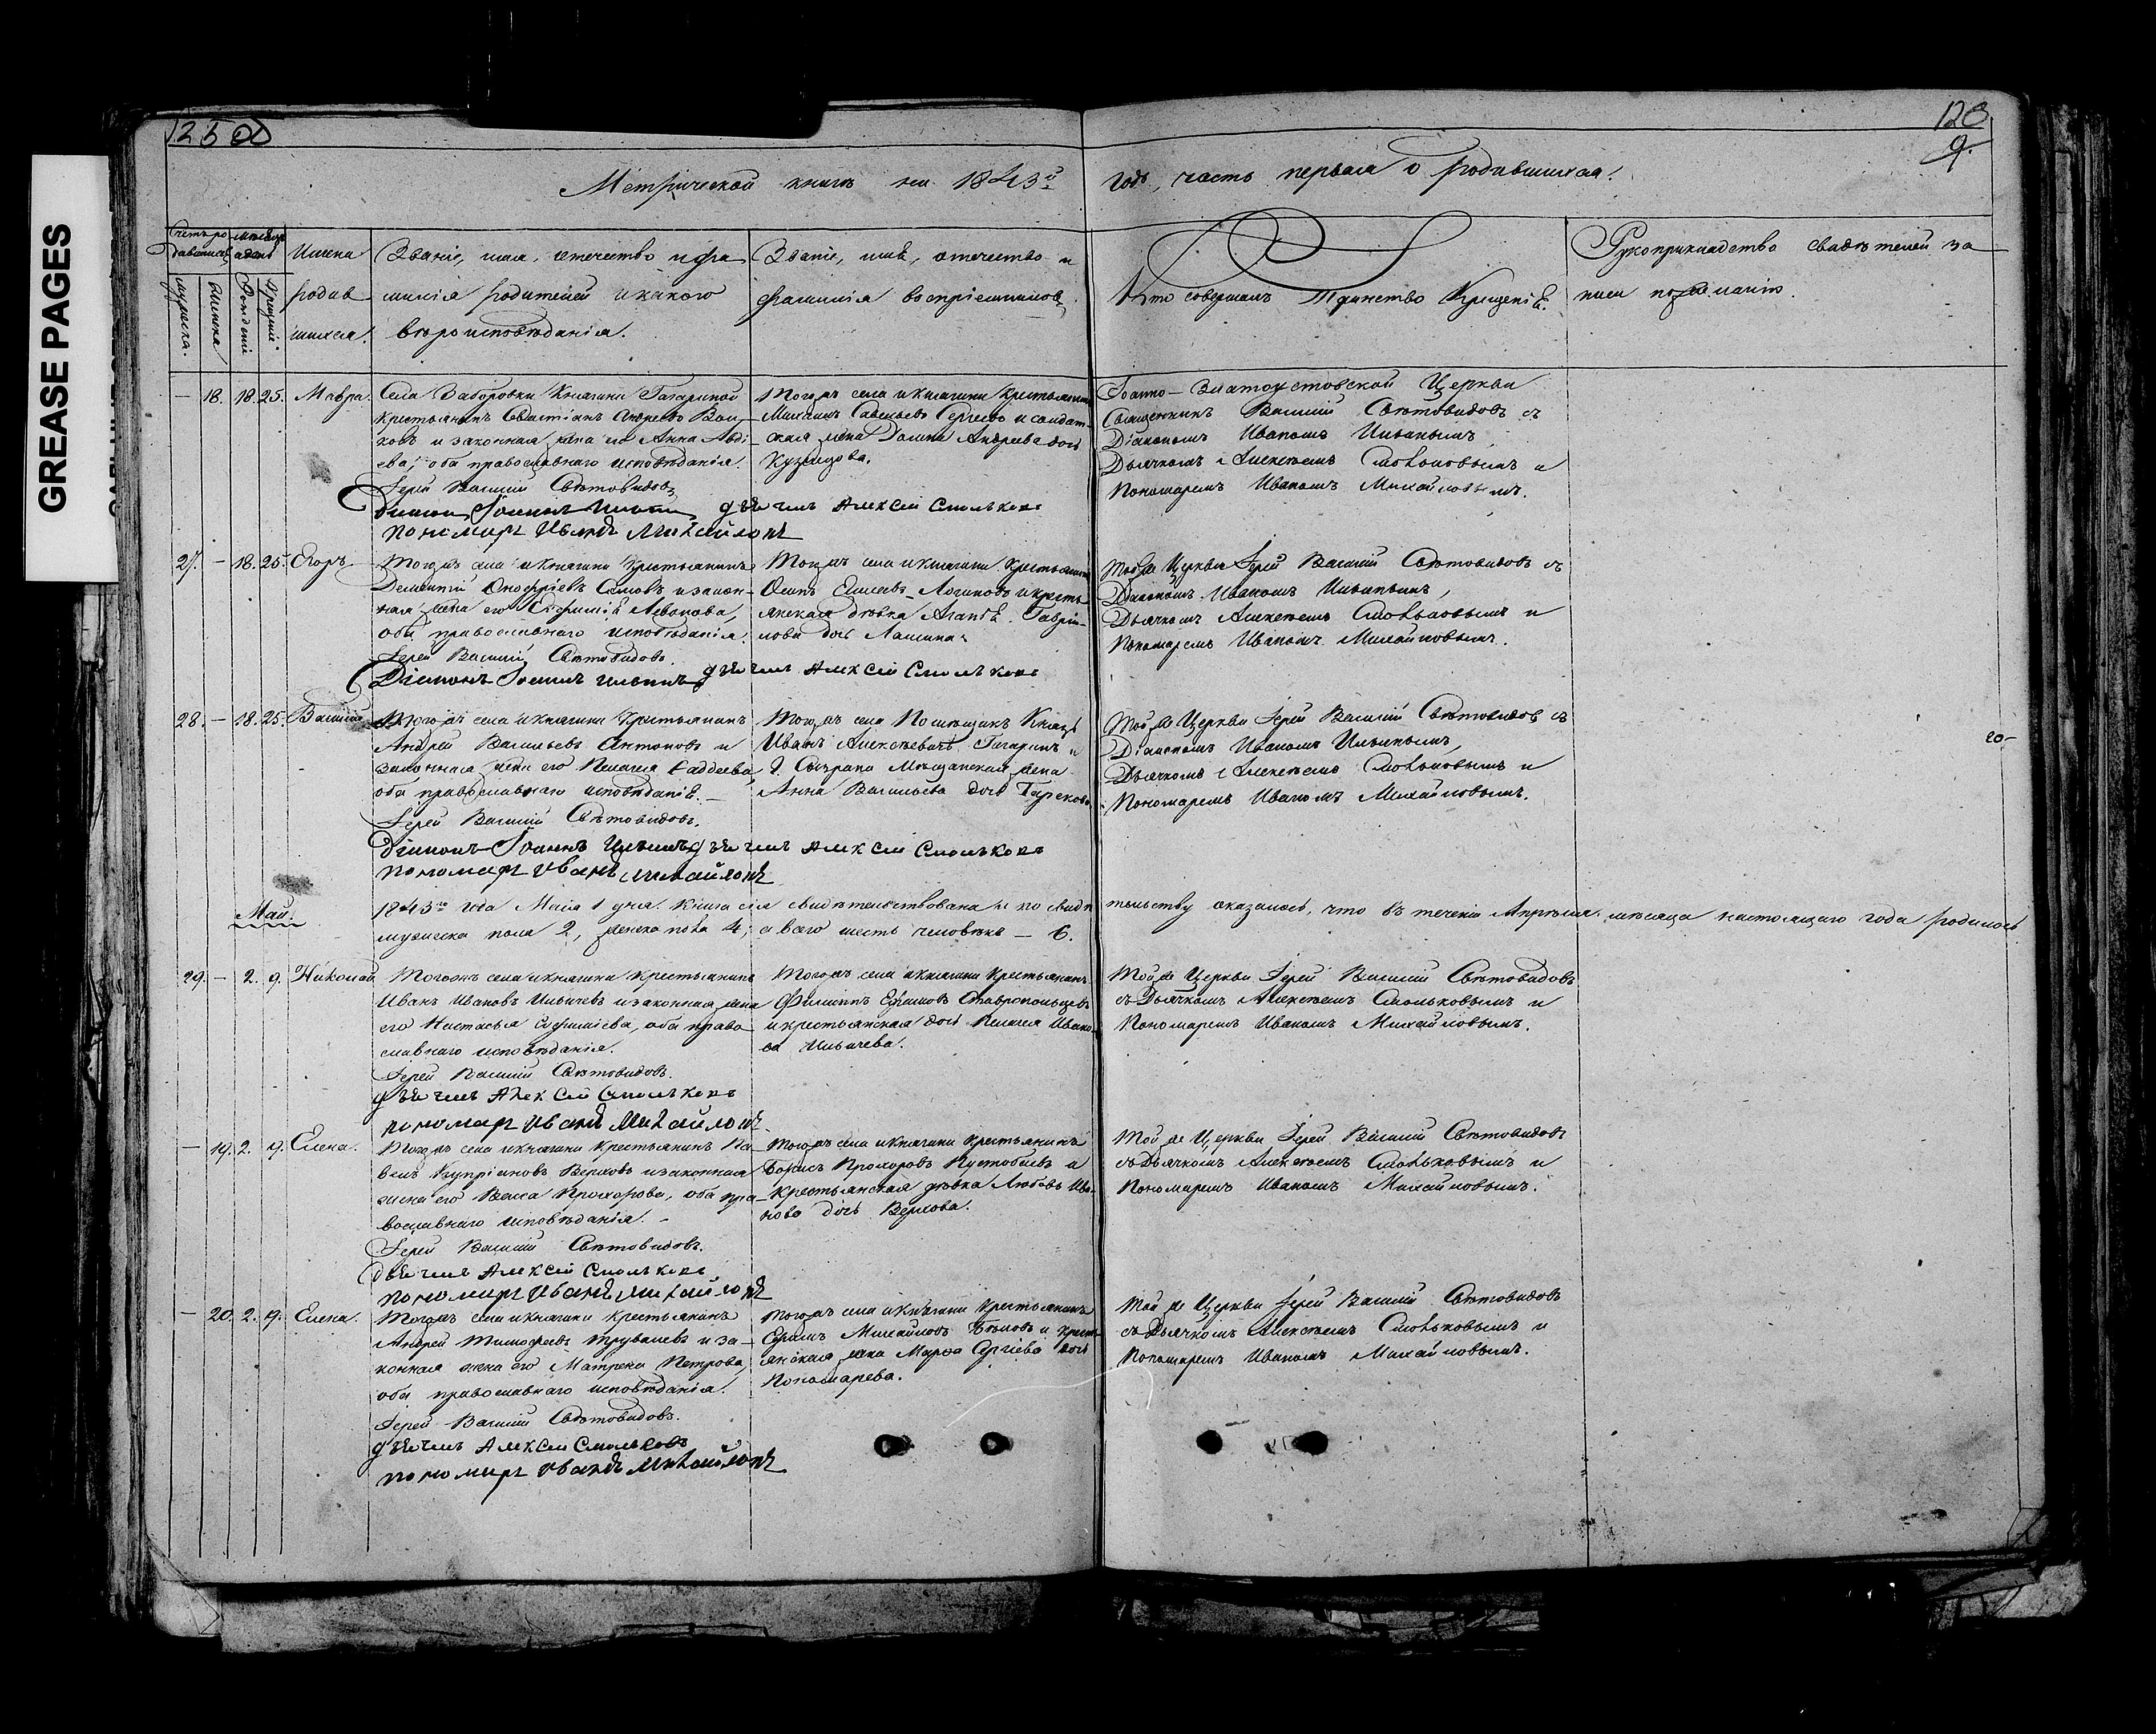 GREASE PAGES
1250
128
9.
Метрической книги на 1843й годъ, часть первая о родившихся.
Счетъ родившихся
мужеска.
женска
Мѣсяцъ и день
Рожденіе
Крещеніе.
Имена
родив
шихся.
Званіе, имя, отечество и фа
милія родителей и какого
вѣроисповѣданія.
Званіе, имя, отечество и
фамилія воспріемниковъ.
Кто совершалъ Таинство Крещенія.
Рукоприкладство свидѣтелей за
писи по желанію.
— 18. 18. 25. Мавра.
Села Заборовки Княгини Гагариной
крестьянинъ Андреевъ Вол-
ковъ и законная жена его Анна Авді-
ева; оба православнаго исповѣданія.
Іерей Василій Свѣтовидовъ
Діаконъ Іоаннъ Ильинъ дьячикъ Алексей Смольковъ
пономарь Иванъ Михайловъ
Тогожъ села и княгини крестьянинъ
Максимъ Савельевъ Сергеевъ и солдат-
ская жена Андреева дочь
Кузнецова.
Іоанно-Златоустовской Церкви
Священникъ Василій Свѣтовидовъ съ
Діакономъ Иваномъ Ильинымъ,
Дьячкомъ Алексѣемъ Смольковымъ и
Пономаремъ Иваномъ Михайловымъ.
27. — 18. 25. Егоръ
Тогожъ села и княгини крестьянинъ
Дементій Онофріевъ и закон-
ная жена его Евфимія Леонова,
оба православнаго исповѣданія.
Іерей Василій Свѣтовидовъ.
Діаконъ Іоаннъ Ильинъ дьячикъ Алексей Смольковъ
Тогожъ села и княгини крестьянинъ
Осипъ Елисеевъ Логиновъ и кресть-
янская дѣвка Агапія Гаврі-
лова дочь Лашина.
Той же Церкви Іерей Василій Свѣтовидовъ съ
Діакономъ Иваномъ Ильинымъ,
Дьячкомъ Алексѣемъ Смольковымъ и
Пономаремъ Иваномъ Михайловымъ.
28. — 18. 25. Василій
Тогожъ села и княгини крестьянинъ
Андрей Васильевъ Антоновъ и
законная жена его Пелагея Фаддеева
оба православнаго исповѣданія. —
Іерей Василій Свѣтовидовъ.
Діаконъ Іоаннъ Ильинъ дьячикъ Алексей Смольковъ
пономарь Иванъ Михайловъ
Тогожъ села Помѣщикъ Князь
Иванъ Алексѣевичъ Гагаринъ и
г. Сызрани Мѣщанская жена
Анна Васильева дочь
Той же Церкви Іерей Василій Свѣтовидовъ съ
Діакономъ Иваномъ Ильинымъ,
Дьячкомъ Алексѣемъ Смольковымъ и
Пономаремъ Иваномъ Михайловымъ.
20—
Май.
1843го года Майя 1 дня. Книга сія свидѣтельствована и по свидѣтельству оказалось, что въ теченіи Апрѣля мѣсяца настоящаго года родилось
мужеска пола 2, женска пола 4, а всего шесть человѣкъ — 6.
29. — 2. 9. Николай
Тогожъ села и княгини крестьянинъ
Иванъ Ивановъ Ильичевъ и законная жена
его Настасья Евфиміева, оба право-
славнаго исповѣданія.
Іерей Василій Свѣтовидовъ.
дьячикъ Алексей Смольковъ
пономарь Иванъ Михайловъ
Тогожъ села и княгини крестьянинъ
Филиппъ Ефимовъ Ставропольцевъ
и крестьянская дочь Пелагея Ивано-
ва Ильичева.
Той же Церкви Іерей Василій Свѣтовидовъ
съ Дьячкомъ Алексѣемъ Смольковымъ и
Пономаремъ Иваномъ Михайловымъ.
— 19. 2. 9. Елена.
Тогожъ села и княгини крестьянинъ Па-
велъ Купріяновъ Верховъ и законная
жена его Васса Прохорова, оба пра-
вославнаго исповѣданія. —
Іерей Василій Свѣтовидовъ.
дьячикъ Алексей Смольковъ
пономарь Иванъ Михайловъ
Тогожъ села и княгини крестьянинъ
Борисъ Прохоровъ Пустобаевъ и
крестьянская дѣвка Любовь Ива-
нова дочь Верхова.
Той же Церкви Іерей Василій Свѣтовидовъ
съ Дьячкомъ Алексѣемъ Смольковымъ и
Пономаремъ Иваномъ Михайловымъ.
— 20. 2. 9. Елена.
Тогожъ села и княгини крестьянинъ
Андрей Тимофеевъ и за-
конная жена его Матрена Петрова,
оба православнаго исповѣданія.
Іерей Василій Свѣтовидовъ.
дьячикъ Алексей Смольковъ
пономарь Иванъ Михайловъ
Тогожъ села и княгини крестьянинъ
Ефимъ Михайловъ Бѣловъ и кресть-
янская жена Марѳа Сергіева дочь
Пономарева.
Той же Церкви Іерей Василій Свѣтовидовъ
съ Дьячкомъ Алексѣемъ Смольковымъ и
Пономаремъ Иваномъ Михайловымъ.